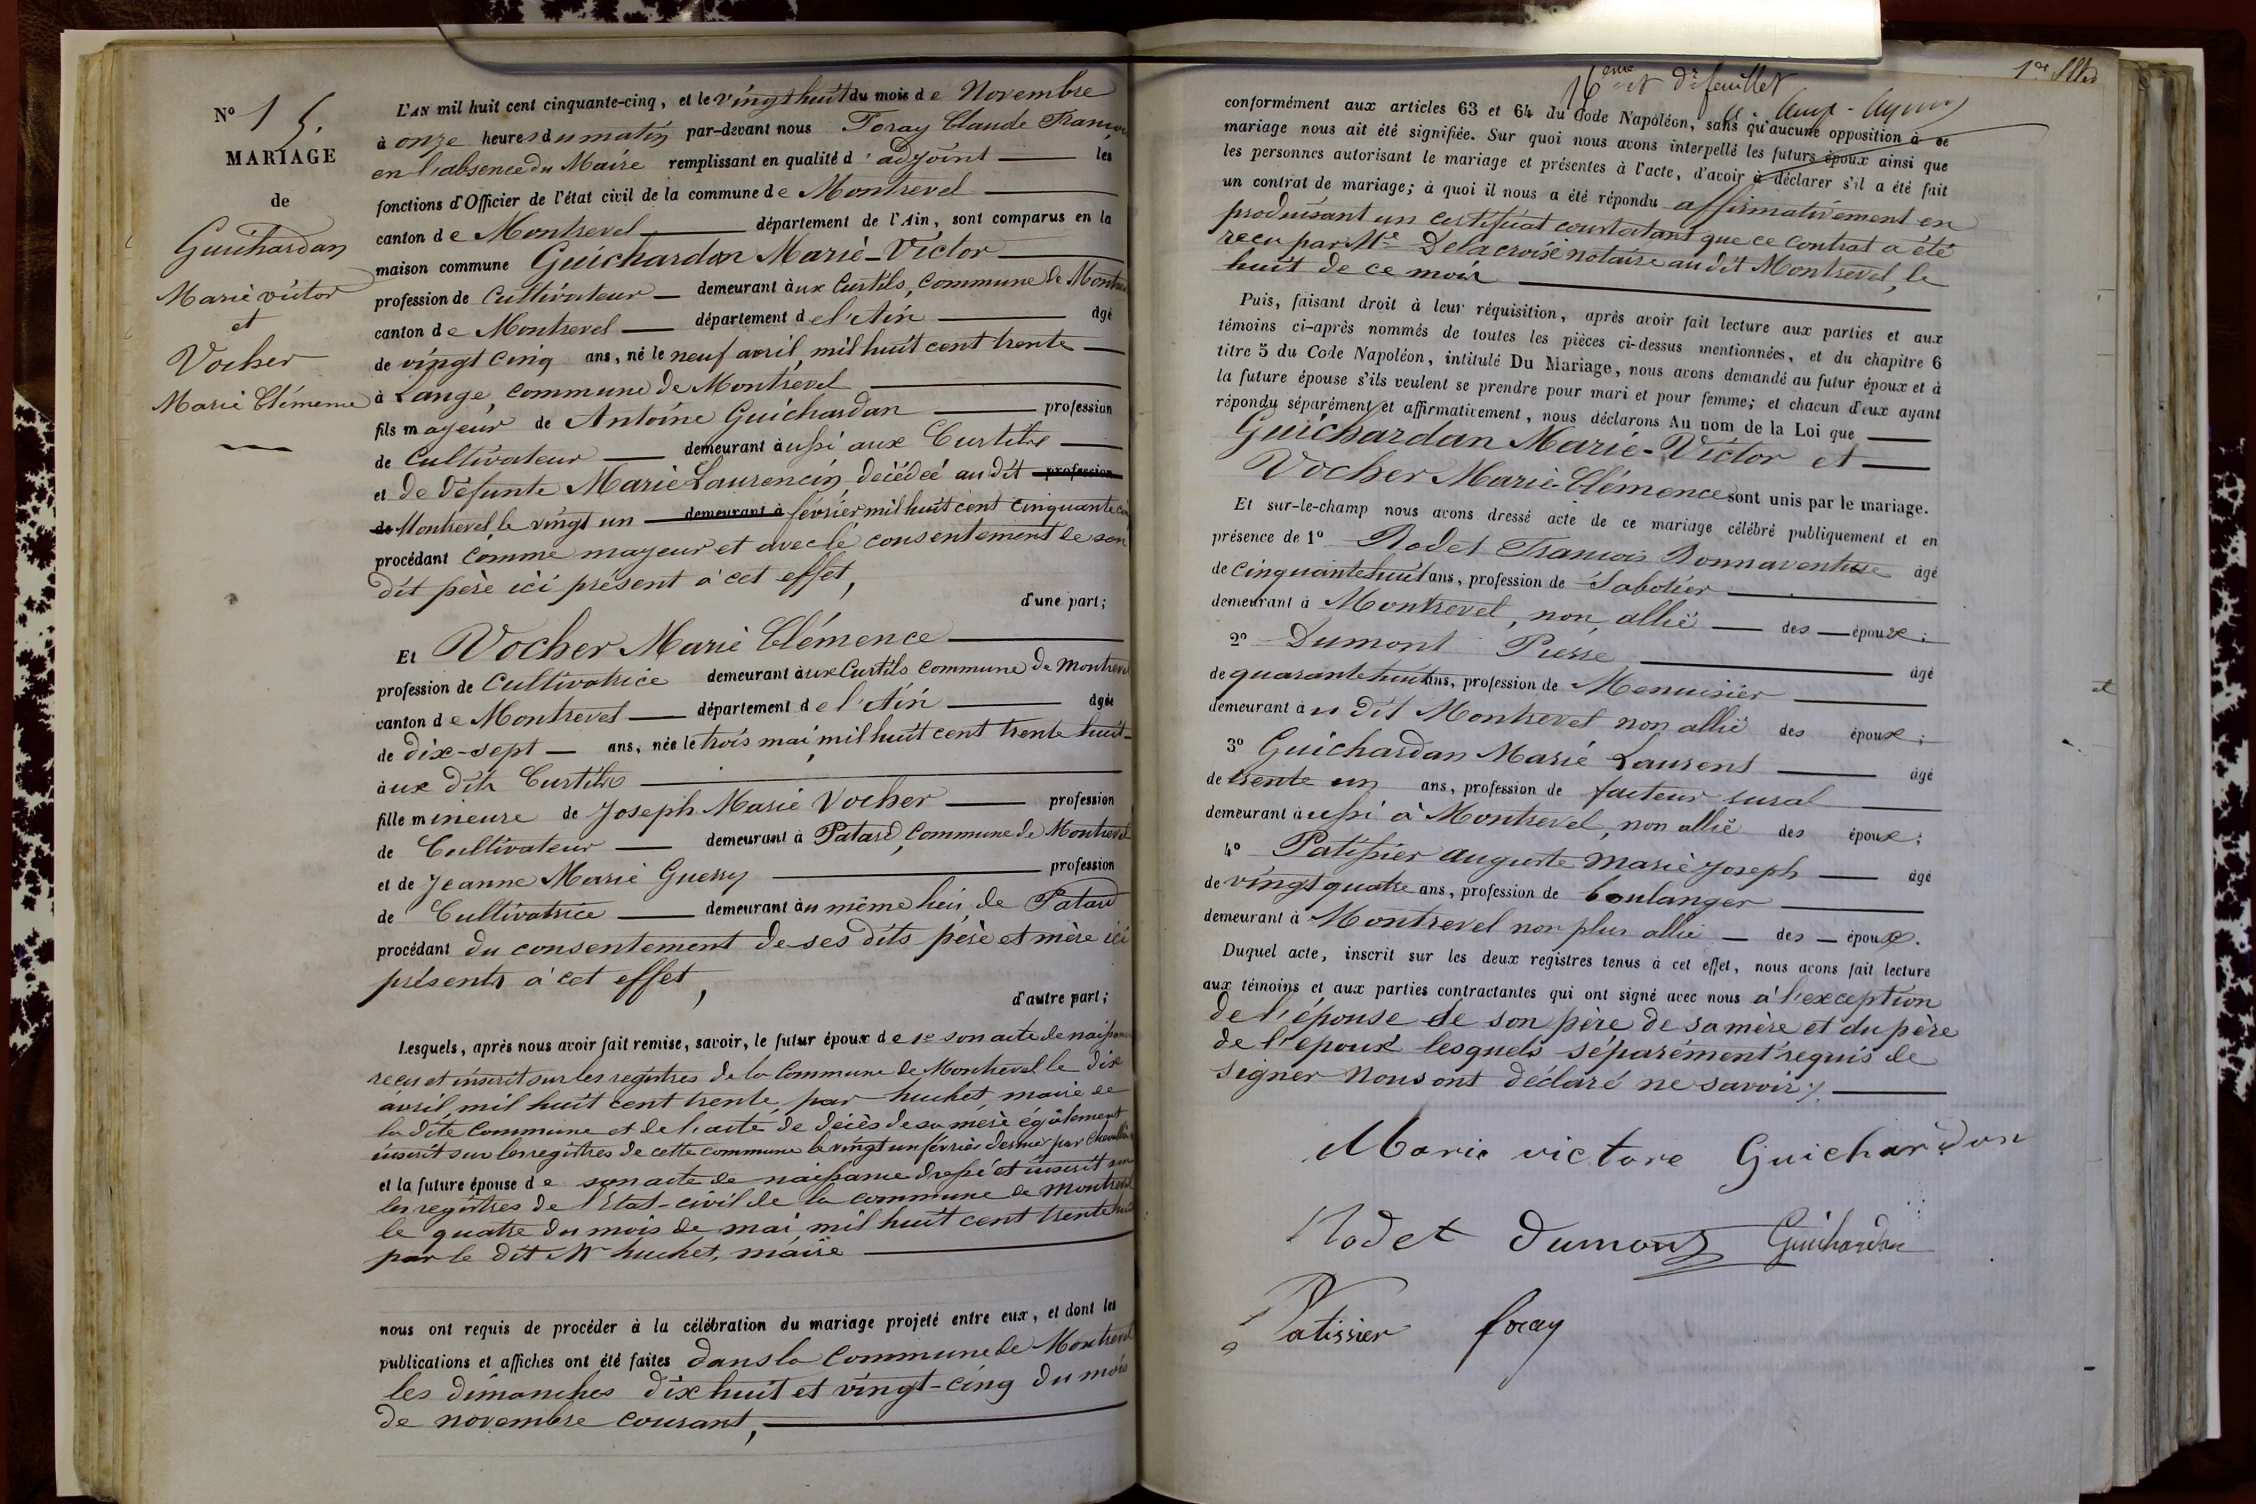 N° 15.
MARIAGE
de
Guichardan
Marie victor
et
Vocher
Marie Clémence
L'AN mil huit cent cinquante-cinq, et le vingt huit du mois de Novembre
à onze heures du matin par-devant nous Foray Claude François
en l'absence du Maire remplissant en qualité d'adjoint les
fonctions d'Officier de l'état civil de la commune de Montrevel
canton de Montrevel département de l'Ain, sont comparus en la
maison commune Guichardan Marie-Victor
profession de Cultivateur demeurant aux Curtils, commune de Montrevel
canton de Montrevel département de l'Ain âgé
de vingt cinq ans, né le neuf avril, mil huit cent trente
à Lange, commune de Montrevel
fils mayeur de Antoine Guichardan profession
de Cultivateur demeurant aussi aux Curtils
et de défunte Marie Laurencin décédée au dit profession
de Montrevel, le vingt un demeurant à février mil huit cent cinquante cinq
procédant comme mayeur et avec le consentement de son
dit père ici présent à cet effet,
d'une part;
Et Vocher Marie Clémence
profession de Cultivatrice demeurant aux Curtils commune de Montrevel
canton de Montrevel département de l'Ain âgée
de dix-sept ans, née le trois mai, mil huit cent trente huit
aux dits Curtils
fille mineure de Joseph Marie Vocher profession
de Cultivateur demeurant à Patard, Commune de Montrevel
et de Jeanne Marie Guerry profession
de Cultivatrice demeurant au même lieu de Patard
procédant du consentement de ses dits père et mère ici
présents à cet effet,
d'autre part;
Lesquels, après nous avoir fait remise, savoir, le futur époux de 1° son acte de naissance
reçu et inscrit sur les registres de la Commune de Montrevel le dix
avril, mil huit cent trente, par huchet, maire de
la dite Commune et de l'acte de décès de sa mère également
inscrit sur les registres de cette commune le vingt un février dernier par
et la future épouse de son acte de naissance dressé et inscrit sur
les registres de l'Etat-civil de la commune de Montrevel
le quatre du mois de mai, mil huit cent trente huit
par le dit Mr huchet, maire
nous ont requis de procéder à la célébration du mariage projeté entre eux, et dont les
publications et affiches ont été faites dans la Commune de Montrevel
les dimanches dix huit et vingt-cinq du mois
de novembre courant,
16ème et dr feuillet
conformément aux articles 63 et 64 du Code Napoléon, sans qu'aucune opposition à ce
mariage nous ait été signifiée. Sur quoi nous avons interpellé les futurs époux ainsi que
les personnes autorisant le mariage et présentes à l'acte, d'avoir à déclarer s'il a été fait
un contrat de mariage; à quoi il nous a été répondu affirmativement en
produisant un certificat constatant que ce contrat a été
reçu par Me Delacroix notaire au dit Montrevel, le
huit de ce mois
Puis, faisant droit à leur réquisition, après avoir fait lecture aux parties et aux
témoins ci-après nommés de toutes les pièces ci-dessus mentionnées, et du chapitre 6
titre 5 du Code Napoléon, intitulé Du Mariage, nous avons demandé au futur époux et à
la future épouse s'ils veulent se prendre pour mari et pour femme; et chacun d'eux ayant
répondu séparément et affirmativement, nous déclarons Au nom de la Loi que
Guichardan Marie-Victor et
Vocher Marie-Clémence sont unis par le mariage.
Et sur-le-champ nous avons dressé acte de ce mariage célébré publiquement et en
présence de 1° Rodet François Bonnaventure âgé
de cinquante huit ans, profession de Sabotier
demeurant à Montrevel, non allié des époux;
2° Dumont Pierre âgé
de quarante huit ans, profession de Menuisier
demeurant au dit Montrevel non allié des époux;
3° Guichardan Marie Laurent âgé
de trente un ans, profession de facteur rural
demeurant aussi à Montrevel, non allié des époux;
4° Patissier auguste Marie Joseph âgé
de vingt quatre ans, profession de boulanger
demeurant à Montrevel non plus allié des époux.
Duquel acte, inscrit sur les deux registres tenus à cet effet, nous avons fait lecture
aux témoins et aux parties contractantes qui ont signé avec nous à l'exception
de l'épouse de son père de sa mère et du père
de l'époux lesquels séparément requis de
signer Nous ont déclaré ne savoir.
Marie victore Guichardan
Rodet Dumont Guichardan
Patissier foray